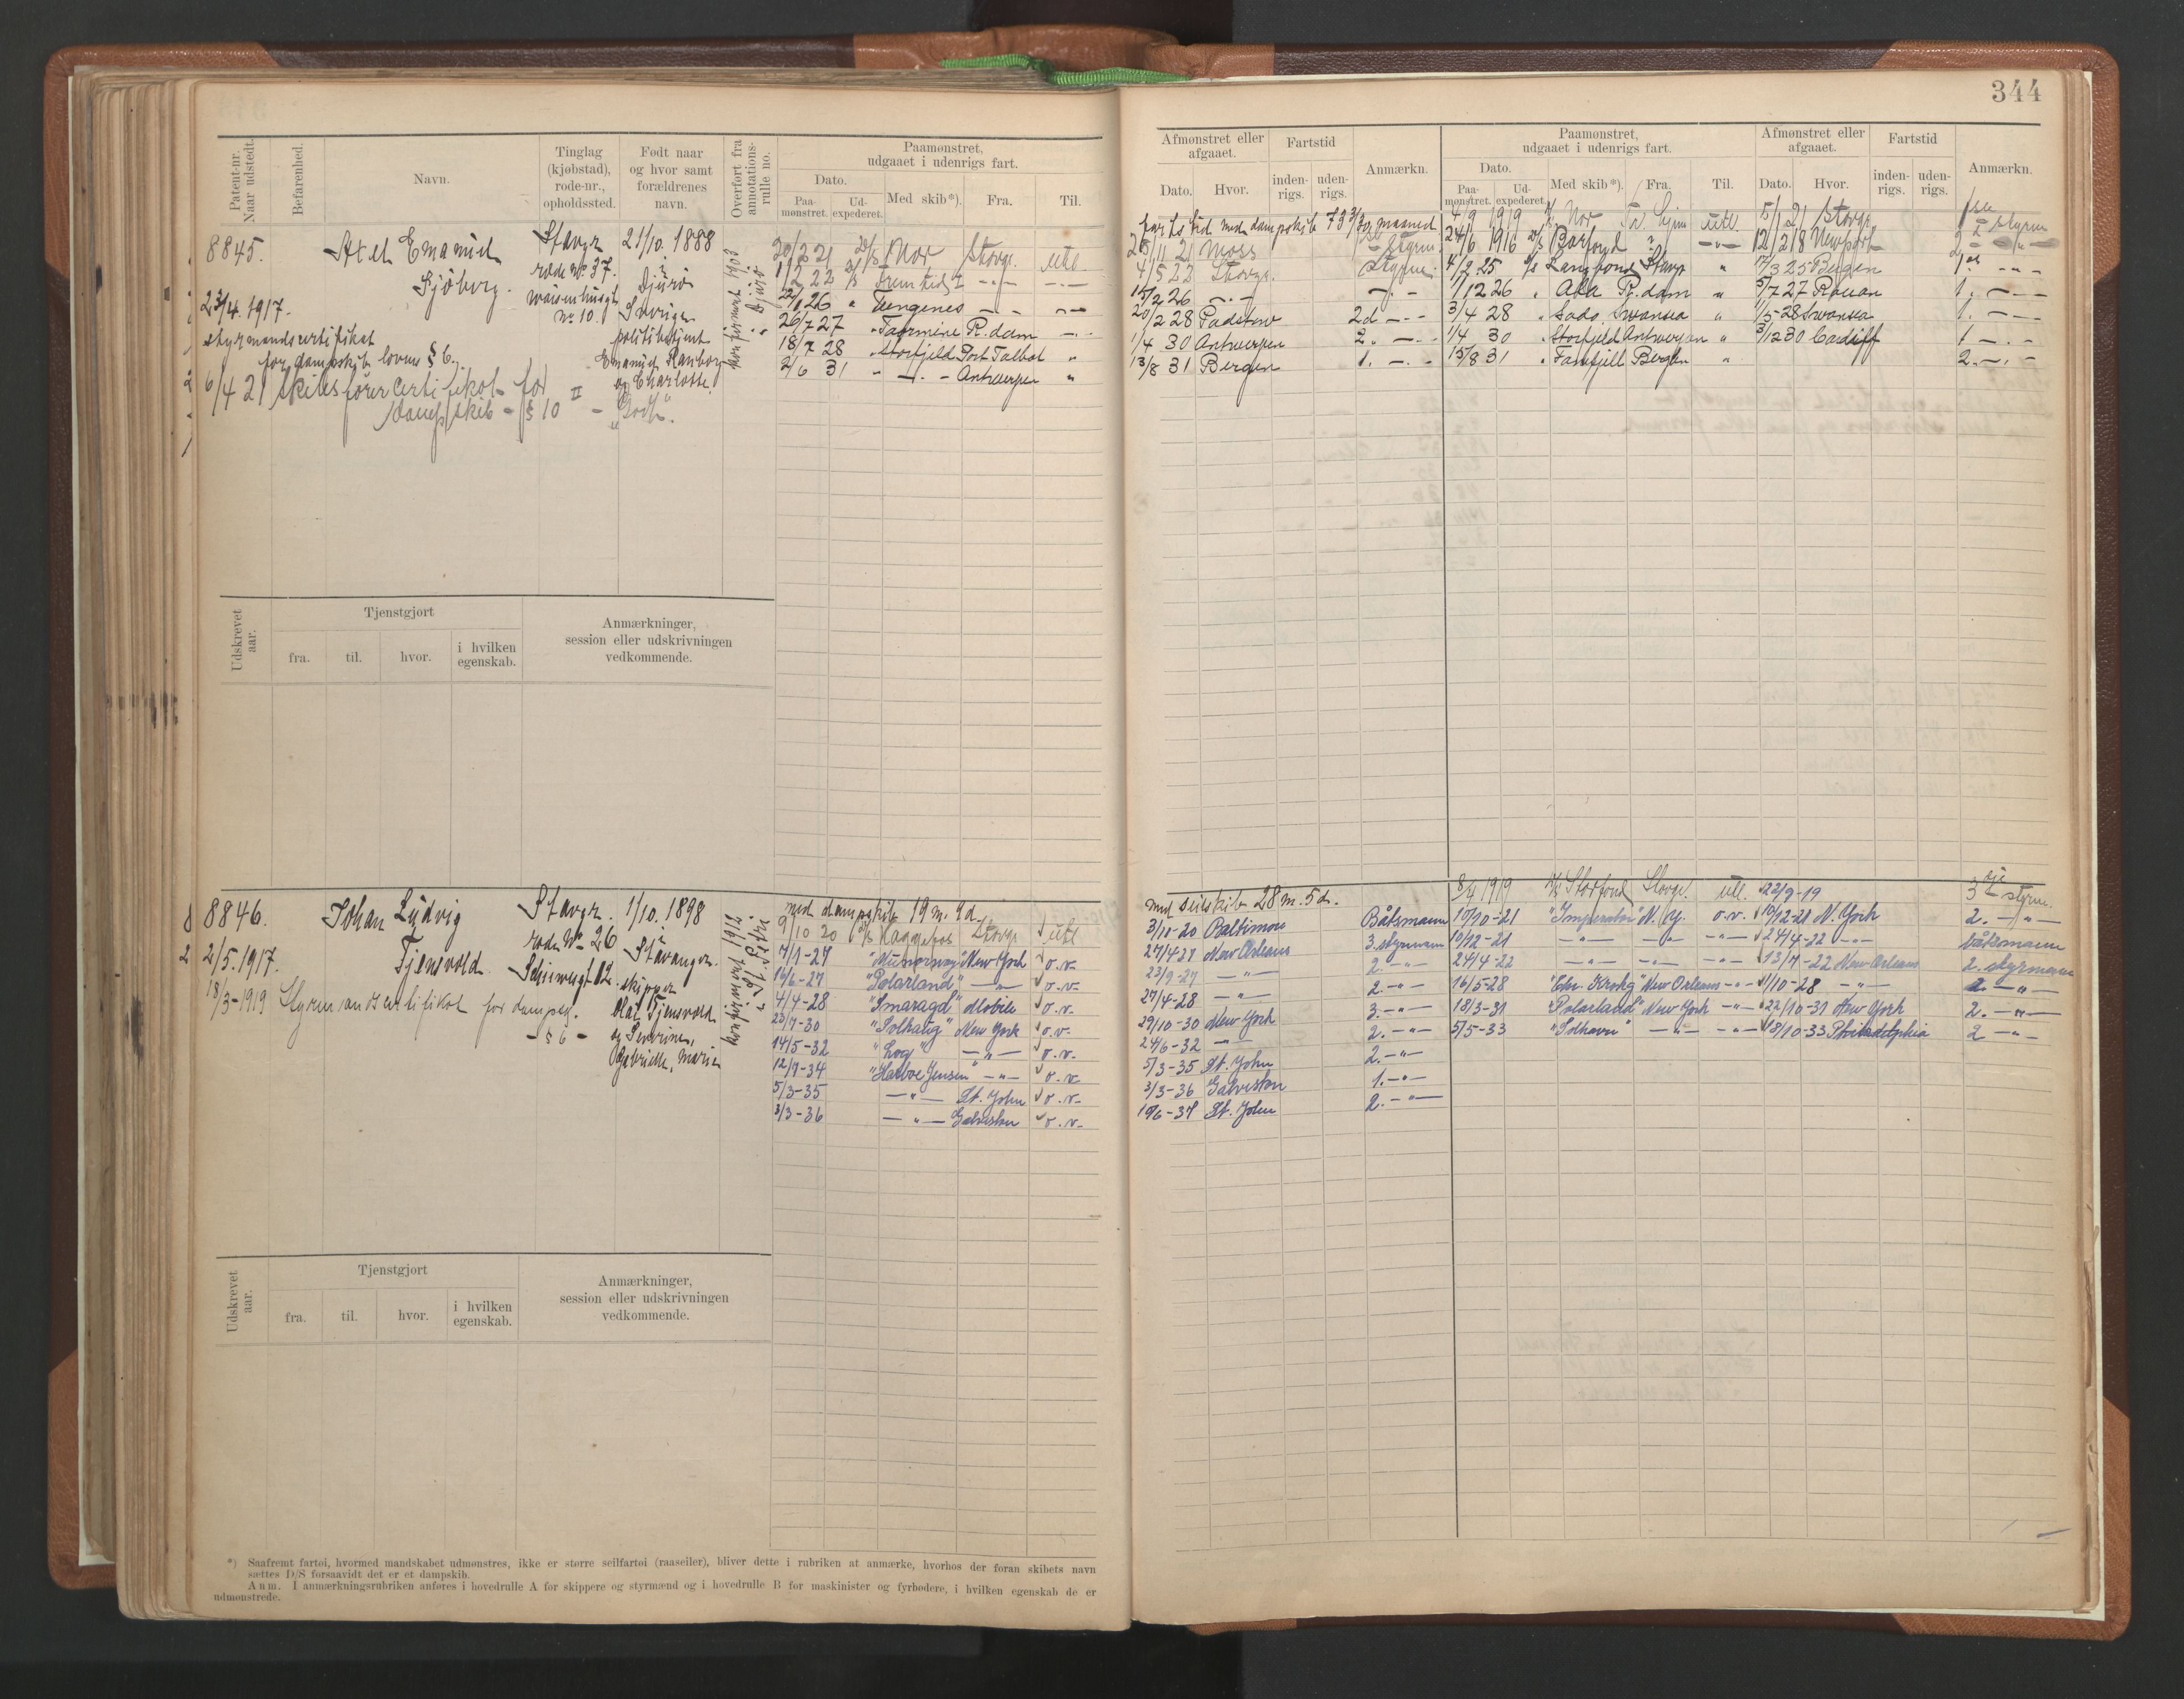 344
Patent-nr.
Naar udstedt.
Befarenhed.
Navn.
Tinglag
(kjøbstad),
rode-nr.,
opholdssted.
Født naar
og hvor samt
forældrenes
navn.
Overført fra
annotations-
rulle no.
Paamønstret,
udgaaet i udenrigs fart.
Dato.
Paa-
mønstret.
Ud-
expederet.
Med skib*).
Fra.
Til.
8845.
Axel Emanuel
Sjöberg.
23/4. 1917.
styrmandscertifikat
for dampskib lovens § 6.
6/4 21 skibsförercertifikat for
dampskib - § 10
Stavgr.
rode No 37.
Waisenhusgt
No 10.
21/10. 1888
i
Djurö
Sverige
politibetjent
Emanuel
og Charlotte
konfirmert 1903
i Djurö
20/2 21 Nor Stavgr. utl.
1/2 22 Fremtid I -"- -"-
22/1 26 " Tungenes - - -"-
26/7 27 " Taormina R.dam -"-
18/7 28 " Storfjeld Port Talbot "
2/6 31 " -"- Antwerpen "
Udskrevet
aar.
Tjenstgjort
fra.
til.
hvor.
i hvilken
egenskab.
Anmærkninger,
session eller udskrivningen
vedkommende.
8846.
Johan Ludvig
Tjensvold.
2/5. 1917.
18/3-1919 Styrmandscertifikat for dampsk.
- § 6 -
Stavgr.
rode No 26
12.
1/10. 1898
i
Stavanger.
skipper
Olai Tjensvold
og Severine,
Gabrielle, Marie
konfirmert 1912
i St. Petri
med dampskib 19 m. 9 d.
9/10 20 Haggefos Stavgr utl
7/1-27 New York o.v.
16/6-27 "Polarland" -"- o.v.
4/4-28 "Smaragd" Mobile o.v.
23/7-30 "Solhaug" New York o.v.
14/5-32 "Log" -"- o.v.
12/9-34 "Harboe Jensen" -"- o.v.
5/3-35 -"- St. John o.v.
3/3-36 -"- Galveston o.v.
Udskrevet
aar.
Tjenstgjort
fra.
til.
hvor.
i hvilken
egenskab.
Anmærkninger,
session eller udskrivningen
vedkommende.
*) Saafremt fartøi, hvormed mandskabet udmønstres, ikke er større seilfartøi (raaseiler), bliver dette i rubriken at anmærke, hvorhos der foran skibets navn
sættes D/S forsaavidt det er et dampskib.
Anm. I anmærkningsrubriken anføres i hovedrulle A for skippere og styrmænd og i hovedrulle B for maskinister og fyrbødere, i hvilken egenskab de er
udmønstrede.
Afmønstret eller
afgaaet.
Dato.
Hvor.
Fartstid
inden-
rigs.
uden-
rigs.
Anmærkn.
Paamønstret,
udgaaet i udenrigs fart.
Dato.
Paa-
mønstret.
Ud-
expederet.
Med skib*).
Fra.
Til.
Afmønstret eller
afgaaet.
Dato.
Hvor.
Fartstid
inden-
rigs.
uden-
rigs.
Anmærkn.
fartstid med dampskib 73 3/30 maaned
4/9 1919 Nor utl. 5/1 21 Stavgr. styrm
25/11 21 Moss styrm. 24/6 1916 12/2 18 Newport
4/5 22 Stavgr. Styrm. 4/2 25 Langfond Stavgr " 17/3 25 Bergen
15/2 26 -"- -"- 1/12 26 " Aka R.dam " 5/7 27 Rouen 1. -"-
20/2 28 Padstow 2d -"- 3/4 28 " Sado Swansea " 1/5-28 Swansea 1. -"-
1/4 30 Antwerpen 2. -"- 1/4 30 " Storfjeld Antwerpen " 3/12 30 Cardiff 1 -"-
13/8 31 Bergen 1. -"- 15/8 31 " Tanfjell Bergen " 2. -"-
med seilskib 28 m. 5 d.
8/4 1919 Storfond Stavgr. utl. 22/9-19 3die styrm.
3/11-20 Baltimore Båtsmann 10/10-21 "Imperator" N.Y. o.v. 10/12-21 N. York 2. -"-
27/4 27 New Orleans 3. styrmann 10/12-21 -"- -"- -"- 24/4-22 -"- båtsmann
23/9-27 -"- 2. -"- 24/4-22 -"- -"- -"- 13/7-22 New Orleans 2. styrmann
27/4-28 -"- 2. -"- 16/5-28 "Chr. Krohg" New Orleans -"- 1/10-28 -"- 2. -"-
29/10-30 New York 3. -"- 18/3-31 "Polarland" New York -"- 22/10-31 New York 2. -"-
24/6-32 -"- 2. -"- 5/5-33 "Solhavn" -"- -"- 18/10-33 Philadelphia 2 -"-
5/3-35 St. John 2. -"-
3/3-36 Galveston 1. -"-
10/6-37 St. John 2. -"-